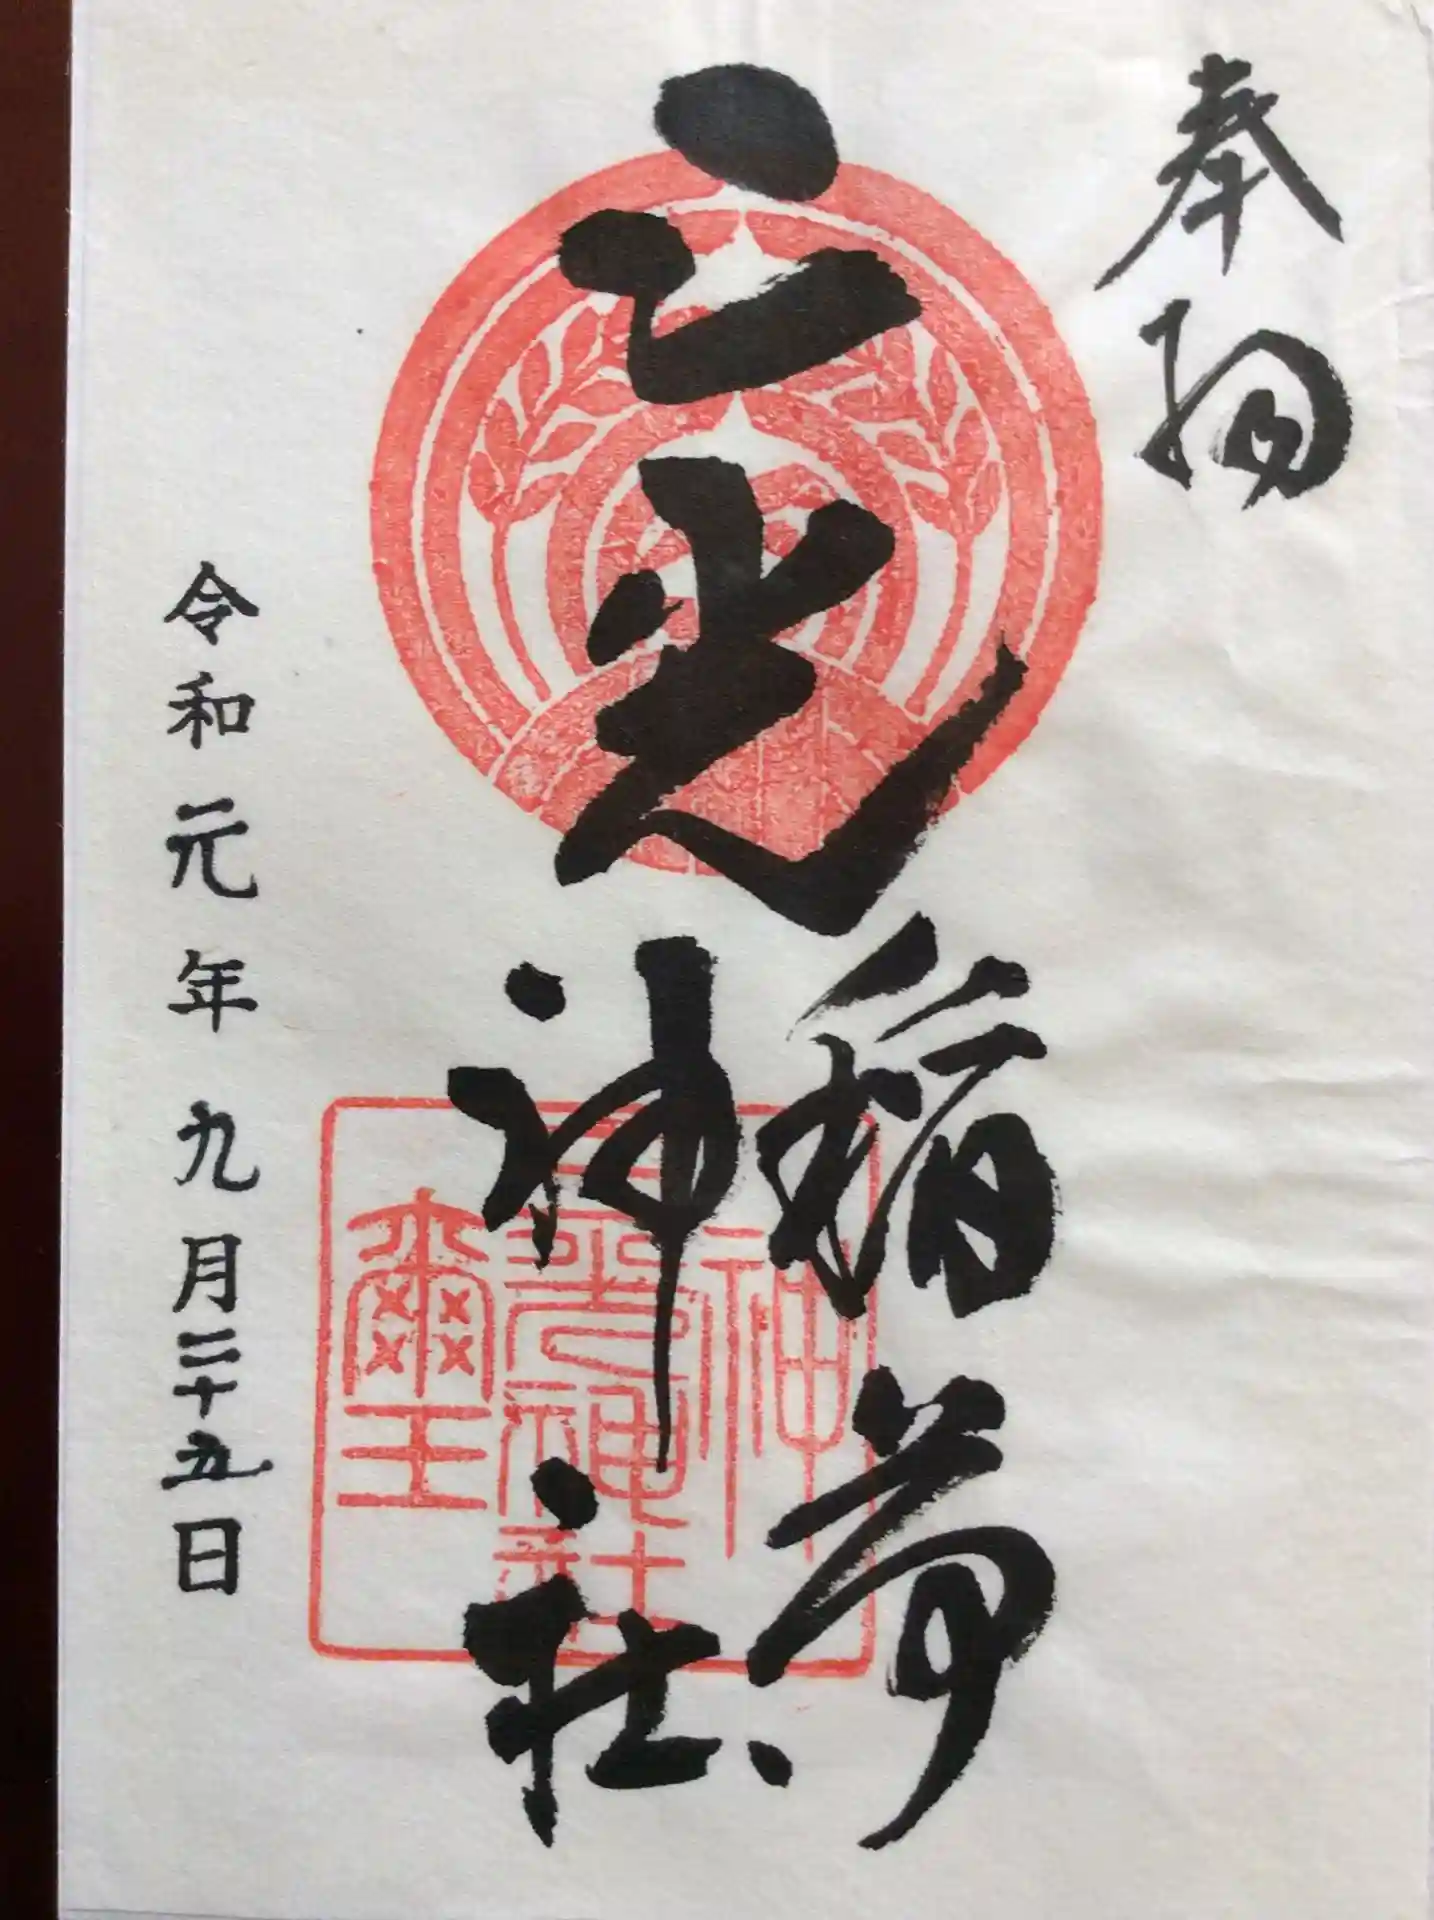 奉納
三光
稲荷
神社
令和元年九月二十五日
神
三光神社
璽